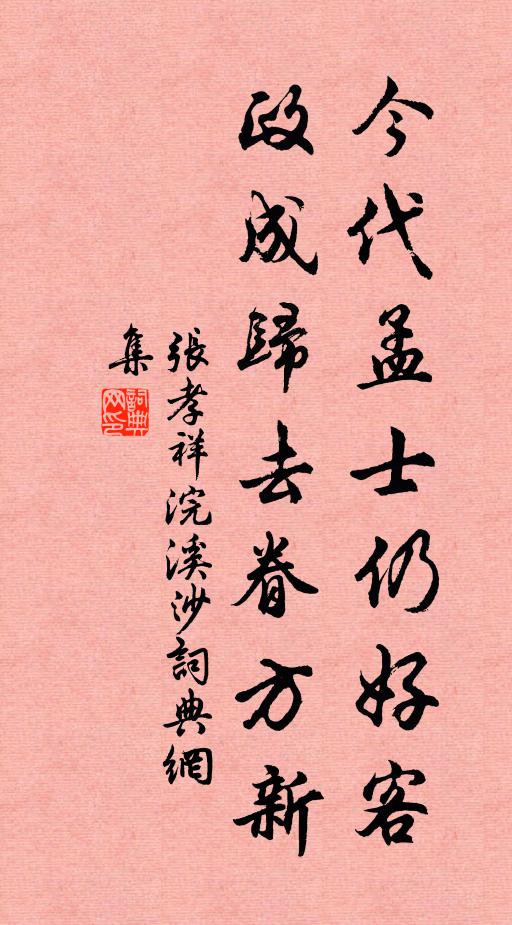 今代孟士仍好客
政成歸去眷方新
張孝祥浣溪沙詞典網
集
詞典
网印